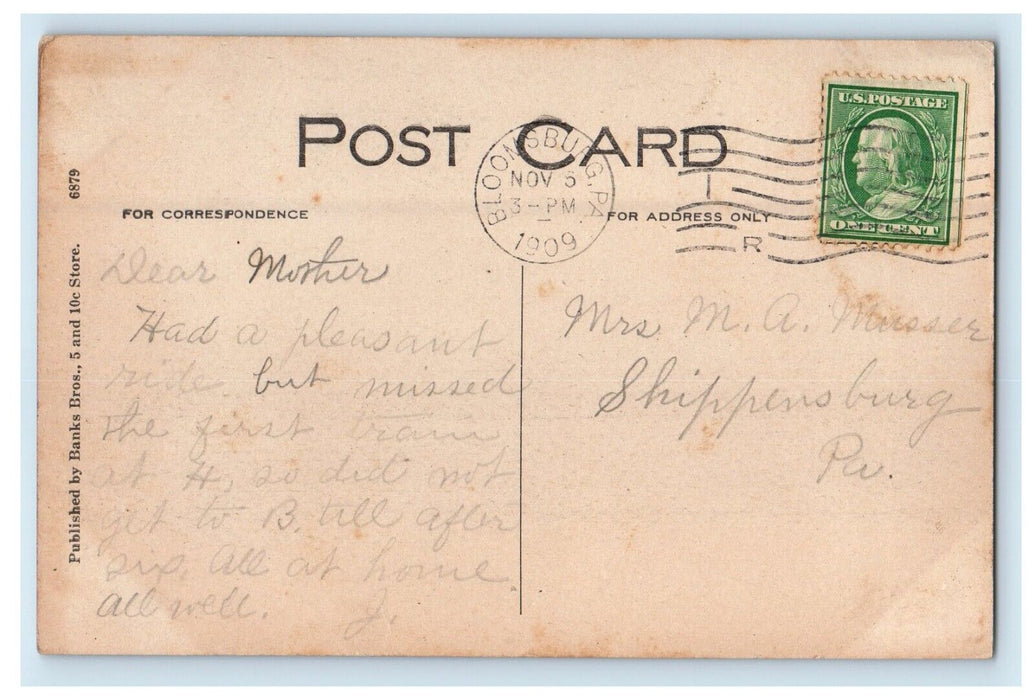 POST CARD
U.S. POSTAGE
ONE CENT
BLOOMSBURG, PA.
NOV 5
3-PM
1909
R
FOR CORRESPONDENCE
FOR ADDRESS ONLY
6879
Published by Banks Bros., 5 and 10c Store.
Dear Mother
Had a pleasant
ride but missed
the first train
at H, so did not
get to B. till after
six. All at home
all well. J.
Mrs. M. A. Musser
Shippensburg
Pa.